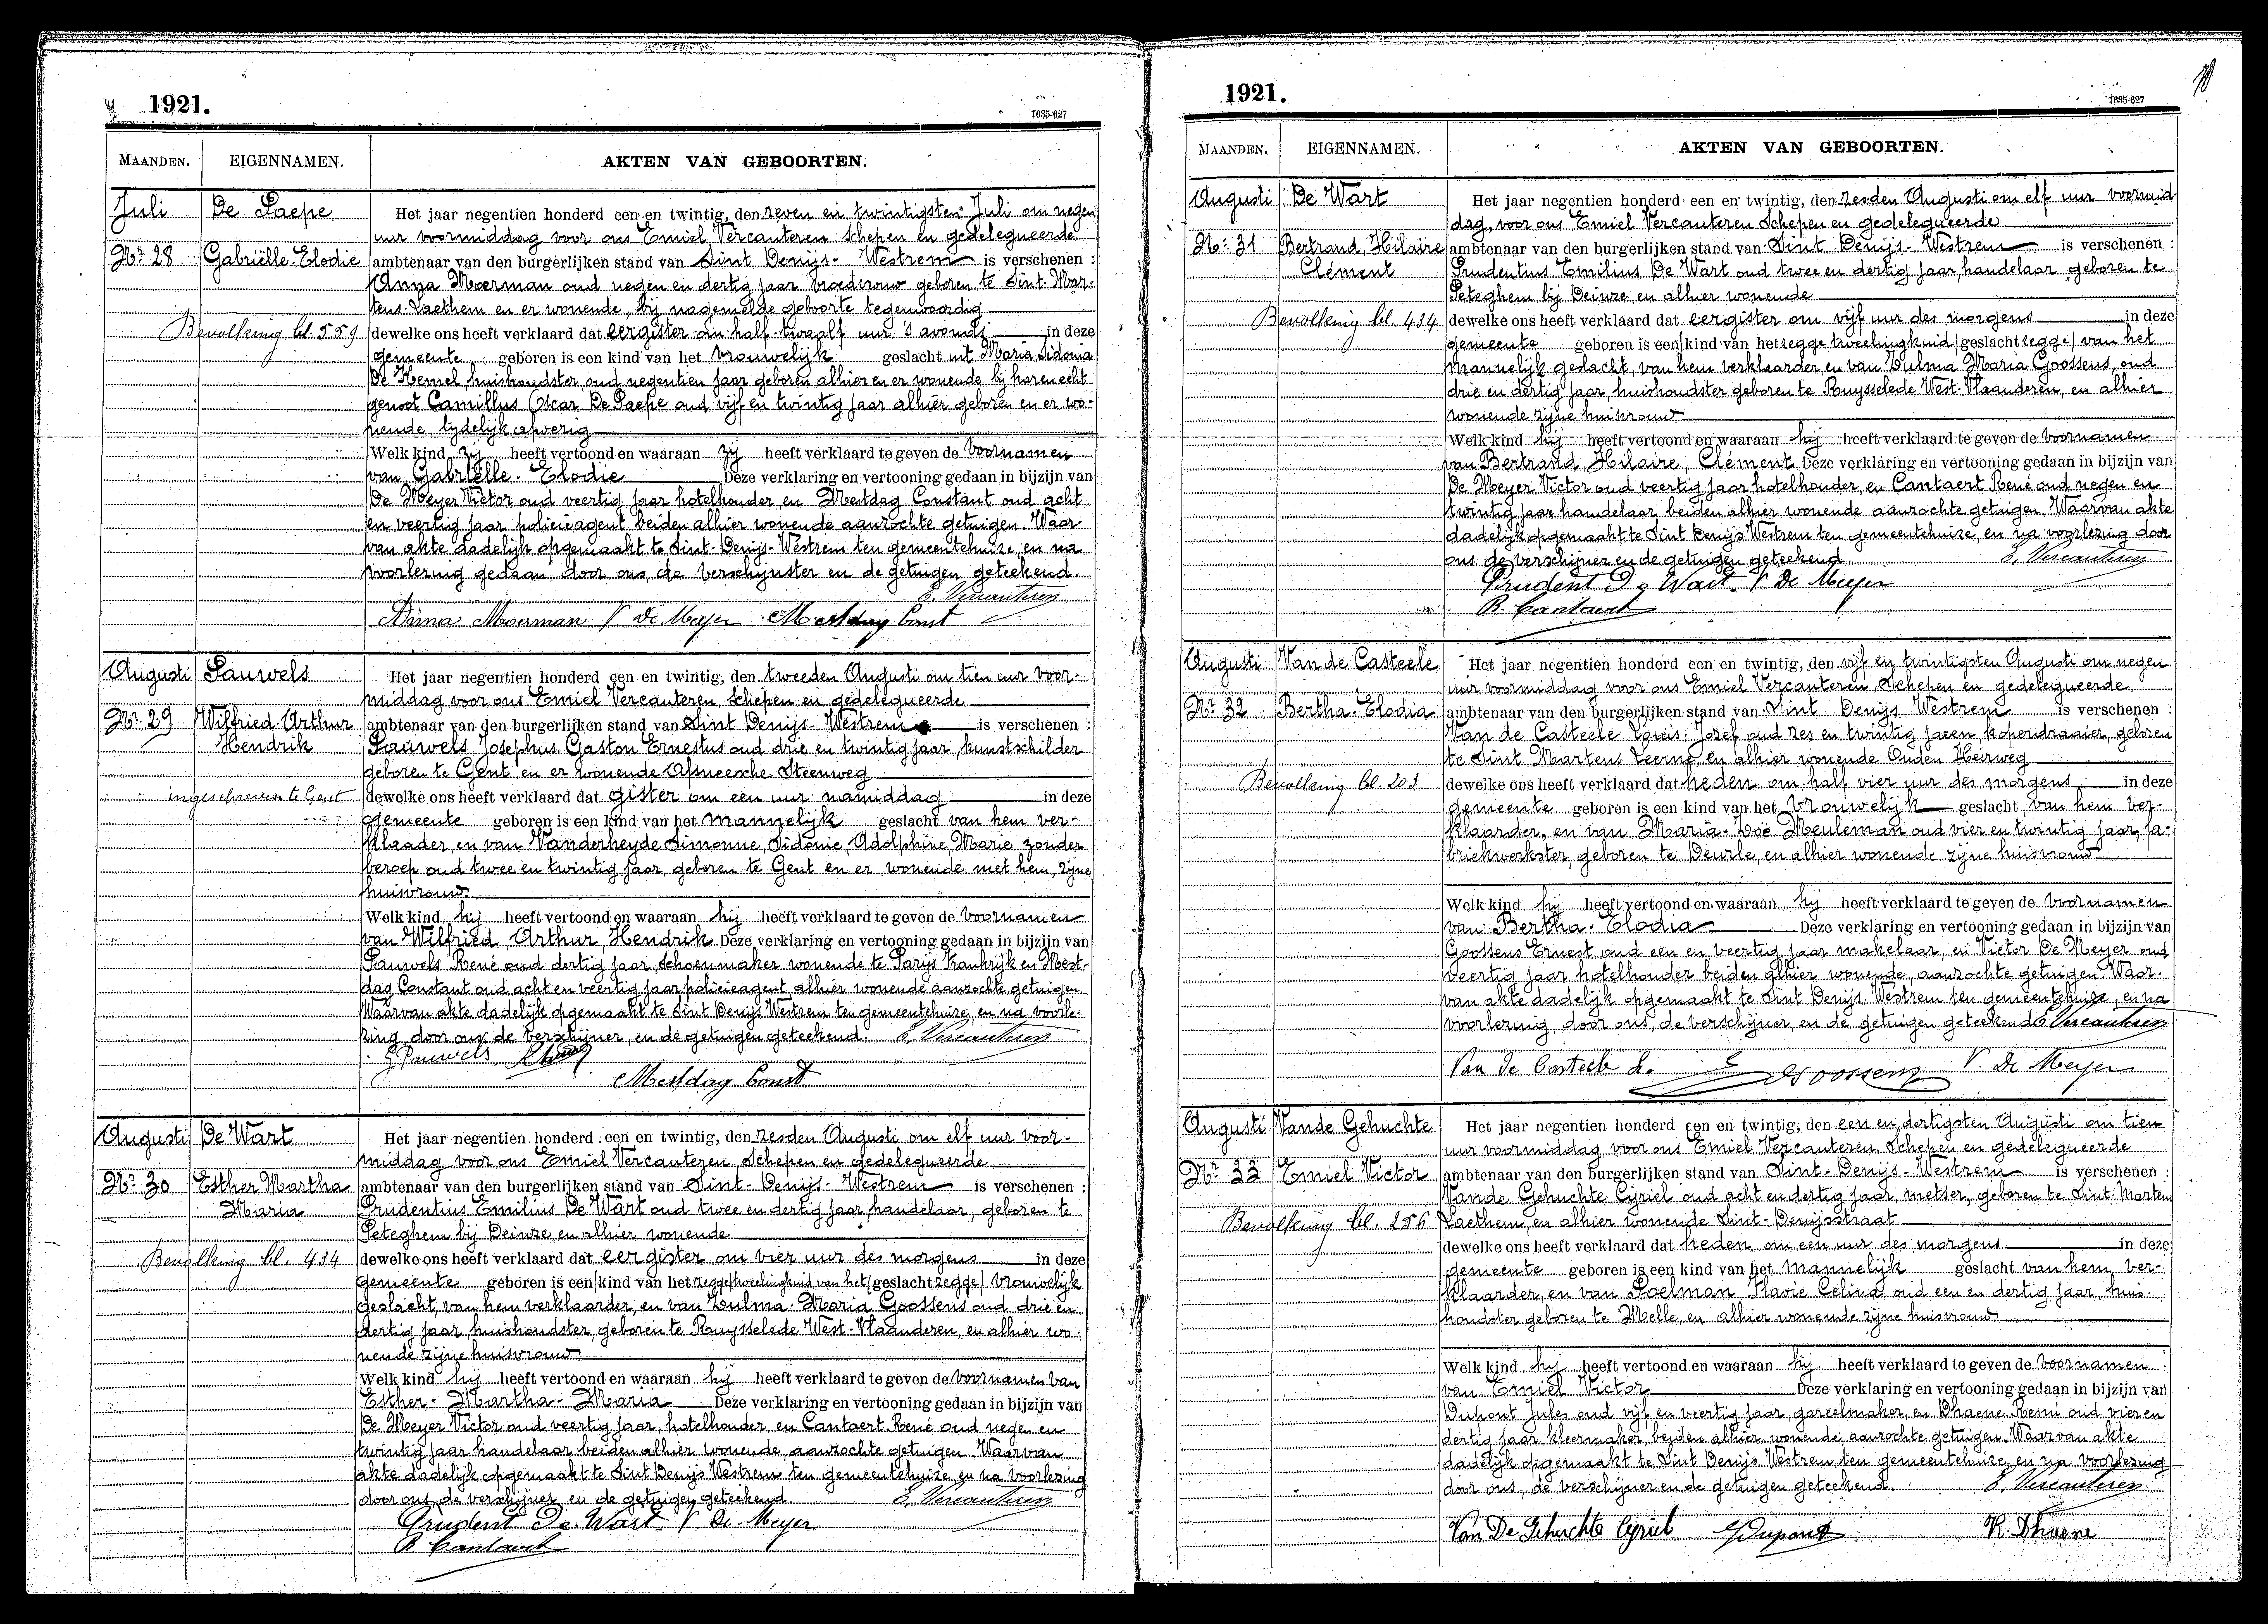 1921.
1635-627
MAANDEN. EIGENNAMEN. AKTEN VAN GEBOORTEN.
Juli De Paepe Het jaar negentien honderd een en twintig, den zeven en twintigsten Juli om negen
uur voormiddag voor ons Emiel Vercauteren Schepen en gedelegueerde
Nr 28 Gabriëlle-Elodie ambtenaar van den burgerlijken stand van Sint Denijs-Westrem is verschenen :
Anna Moerman oud negen en dertig jaar vroedvrouw geboren te Sint-Mar-
tens-Laethem en er wonende, bij nagemelde geboorte tegenwoordig
Bevolking bl. 559 dewelke ons heeft verklaard dat eergister om half twaalf uur 's avonds in deze
gemeente geboren is een kind van het vrouwelijk geslacht uit Maria Sidonia
De Hemel huishoudster oud negentien jaar geboren alhier en er wonende bij haren echt
genoot Camillus Oscar De Paepe oud vijf en twintig jaar alhier geboren en er wo-
nende, tijdelijk afwezig
Welk kind zij heeft vertoond en waaraan zij heeft verklaard te geven de voornamen
van Gabriëlle-Elodie Deze verklaring en vertooning gedaan in bijzijn van
De Meyer Victor oud veertig jaar hotelhouder en Mestdag Constant oud acht
en veertig jaar policieagent beiden alhier wonende aanzochte getuigen. Waar-
van akte dadelijk opgemaakt te Sint-Denijs-Westrem ten gemeentehuize, en na
voorlezing gedaan, door ons, de verschijnster en de getuigen geteekend.
E. Vercauteren
Anna Moerman V. De Meyer Mestdag Const
Augusti Pauwels Het jaar negentien honderd een en twintig, den tweeden Augusti om tien uur voor-
middag voor ons Emiel Vercauteren Schepen en gedelegueerde
Nr 29 Wilfried-Arthur ambtenaar van den burgerlijken stand van Sint Denijs-Westrem is verschenen :
Hendrik Pauwels Josephus Gaston Ernestus oud drie en twintig jaar, kunstschilder
geboren te Gent en er wonende Afsneesche Steenweg
ingeschreven te Gent dewelke ons heeft verklaard dat gister om een uur namiddag in deze
gemeente geboren is een kind van het mannelijk geslacht van hem ver-
klaader, en van Vanderheyde Simonne, Sidonie, Adolphine, Marie zonder
beroep oud twee en twintig jaar, geboren te Gent en er wonende met hem, zijne
huisvrouw
Welk kind hij heeft vertoond en waaraan hij heeft verklaard te geven de voornamen
van Wilfried, Arthur, Hendrik Deze verklaring en vertooning gedaan in bijzijn van
Pauwels René oud dertig jaar, schoenmaker wonende te Parijs Frankrijk en Mest-
dag Constant oud acht en veertig jaar policieagent, alhier wonende aanzochte getuigen.
Waarvan akte dadelijk opgemaakt te Sint Denijs Westrem ten gemeentehuize, en na voorle-
zing, door ons, de verschijner, en de getuigen geteekend. E. Vercauteren
G. Pauwels
Mestdag Const
Augusti De Wart Het jaar negentien honderd een en twintig, den zesden Augusti om elf uur voor-
middag voor ons Emiel Vercauteren, Schepen en gedelegueerde
Nr 30 Esther Martha ambtenaar van den burgerlijken stand van Sint-Denijs-Westrem is verschenen :
Maria Prudentius Emilius De Wart oud twee en dertig jaar, handelaar, geboren te
Peteghem bij Deinze, en alhier wonende
Bevolking bl. 434 dewelke ons heeft verklaard dat eergister om vier uur des morgens in deze
gemeente geboren is een/kind van het zegge/tweelingkind van het/geslacht zegge/vrouwelijk
geslacht, van hem verklaarder, en van Zulma-Maria Goossens oud drie en
dertig jaar huishoudster, geboren te Ruysselede West-Vlaanderen, en alhier wo-
nende zijne huisvrouw
Welk kind hij heeft vertoond en waaraan hij heeft verklaard te geven de voornamen van
Esther-Martha-Maria Deze verklaring en vertooning gedaan in bijzijn van
De Meyer Victor oud veertig jaar, hotelhouder, en Cantaert René oud negen en
twintig jaar handelaar beiden alhier wonende, aanzochte getuigen. Waarvan
akte dadelijk opgemaakt te Sint Denijs Westrem ten gemeentehuize, en na voorlezing
door ons, de verschijner, en de getuigen geteekend E. Vercauteren
Prudent De Wart V. De Meyer
R. Cantaert
1921.
1635-627
MAANDEN. EIGENNAMEN. AKTEN VAN GEBOORTEN.
Augusti De Wart Het jaar negentien honderd een en twintig, den zesden Augusti om elf uur voormid-
dag, voor ons Emiel Vercauteren Schepen en gedelegueerde
Nr. 31 Bertrand, Hilaire ambtenaar van den burgerlijken stand van Sint Denijs-Westrem is verschenen :
Clément Prudentius Emilius De Wart oud twee en dertig jaar, handelaar geboren te
Peteghem bij Deinze, en alhier wonende
Bevolking bl. 434 dewelke ons heeft verklaard dat eergister om vijf uur des morgens in deze
gemeente geboren is een/kind van het zegge tweelingkind/geslacht zegge/van het
mannelijk geslacht, van hem verklaarder, en van Zulma Maria Goossens, oud
drie en dertig jaar huishoudster geboren te Ruysselede West-Vlaanderen, en alhier
wonende zijne huisvrouw
Welk kind hij heeft vertoond en waaraan hij heeft verklaard te geven de voornamen
van Bertrand, Hilaire, Clément Deze verklaring en vertooning gedaan in bijzijn van
De Meyer Victor oud veertig jaar hotelhouder, en Cantaert René oud negen en
twintig jaar handelaar beiden alhier wonende aanzochte getuigen. Waarvan akte
dadelijk opgemaakt te Sint Denijs Westrem ten gemeentehuize, en na voorlezing door
ons de verschijner en de getuigen geteekend. E. Vercauteren
Prudent De Wart V. De Meyer
R. Cantaert
Augusti Van de Casteele Het jaar negentien honderd een en twintig, den vijf en twintigsten Augusti om negen
uur voormiddag voor ons Emiel Vercauteren Schepen en gedelegueerde
Nr. 32 Bertha-Elodia ambtenaar van den burgerlijken stand van Sint Denijs Westrem is verschenen :
Van de Casteele Louis-Jozef oud zes en twintig jaren, koperdraaier, geboren
te Sint Martens Leerne, en alhier wonende Ouden Heirweg
Bevolking bl. 203 dewelke ons heeft verklaard dat heden om half vier uur des morgens in deze
gemeente geboren is een kind van het vrouwelijk geslacht van hem ver-
klaarder, en van Maria-Zoë Meuleman oud vier en twintig jaar, fa-
briekwerkster, geboren te Deurle, en alhier wonende zijne huisvrouw
Welk kind hij heeft vertoond en waaraan hij heeft verklaard te geven de voornamen
van Bertha-Elodia Deze verklaring en vertooning gedaan in bijzijn van
Goossens Ernest oud een en veertig jaar makelaar, en Victor De Meyer oud
veertig jaar hotelhouder beiden alhier wonende, aanzochte getuigen. Waar-
van akte dadelijk opgemaakt te Sint Denijs-Westrem ten gemeentehuize, en na
voorlezing, door ons, de verschijner, en de getuigen geteekend E. Vercauteren
Van de Casteele L. E Goossens V. De Meyer
Augusti Vande Gehuchte Het jaar negentien honderd een en twintig, den een en dertigsten Augusti om tien
uur voormiddag, voor ons Emiel Vercauteren, Schepen en gedelegueerde
Nr. 33 Emiel Victor ambtenaar van den burgerlijken stand van Sint-Denijs-Westrem is verschenen :
Vande Gehuchte Cyriel oud acht en dertig jaar, metser, geboren te Sint-Martens
Bevolking bl. 256 Laethem, en alhier wonende Sint-Denijsstraat
dewelke ons heeft verklaard dat heden om een uur des morgens in deze
gemeente geboren is een kind van het mannelijk geslacht van hem ver-
klaarder, en van Poelman Flavie Celina oud een en dertig jaar, huis-
houdster geboren te Melle, en alhier wonende zijne huisvrouw
Welk kind hij heeft vertoond en waaraan hij heeft verklaard te geven de voornamen
van Emiel Victor Deze verklaring en vertooning gedaan in bijzijn van
Dupont Jules oud vijf en veertig jaar, gareelmaker, en Dhaene Remi oud vier en
dertig jaar, kleermaker, beiden alhier wonende, aanzochte getuigen. Waarvan akte
dadelijk opgemaakt te Sint Denijs Westrem ten gemeentehuize en na voorlezing
door ons, de verschijner en de getuigen geteekend. E. Vercauteren
Van De Gehuchte Cyriel J Dupont R. Dhaene